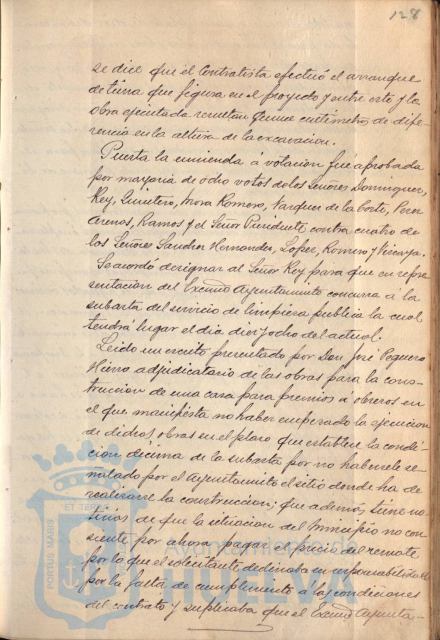 128
se dice que el Contratista efectuó el arranque
de tierra que figura en el proyecto y entre esto y la
obra ejecutada resultan quince centímetros de dife-
rencia en la altura de la excavacion.
Puesta la enmienda á votación fue aprobada
por mayoria de ocho votos de los Señores Dominguez,
Rey, Quintero, Mora Romero, Vazquez de la Corte, Perez
Arenas, Ramos y el Señor Presidente contra cuatro de
los Señores Sanchez Hernandez, Lopez, Romero y Vizcaya.
Se acordó designar al Señor Rey para que en repre-
sentación del Excmo Ayuntamiento concurra á la
subasta del servicio de limpieza pública la cual
tendrá lugar el dia diez y ocho del actual.
Leido un escrito presentado por Don José Peguero
Hierro adjudicatario de las obras para la cons-
truccion de una casa para premios á obreros en
el que manifiesta no haber empezado la ejecucion
de dichas obras en el plazo que establece la condi-
cion décima de la subasta por no habersele se-
ñalado por el Ayuntamiento el sitio donde ha de
realizarse la construccion; que ademas, tiene no-
ticias de que la situacion del Municipio no con-
siente por ahora pagar el precio del remate
por lo que el solicitante declinaba su responsabilidad
por la falta de cumplimiento á las condiciones
del contrato y suplicaba que el Excmo Ayunta-
PORTUS MARIS
ET TERRAE
Ayuntamiento de
HUELVA